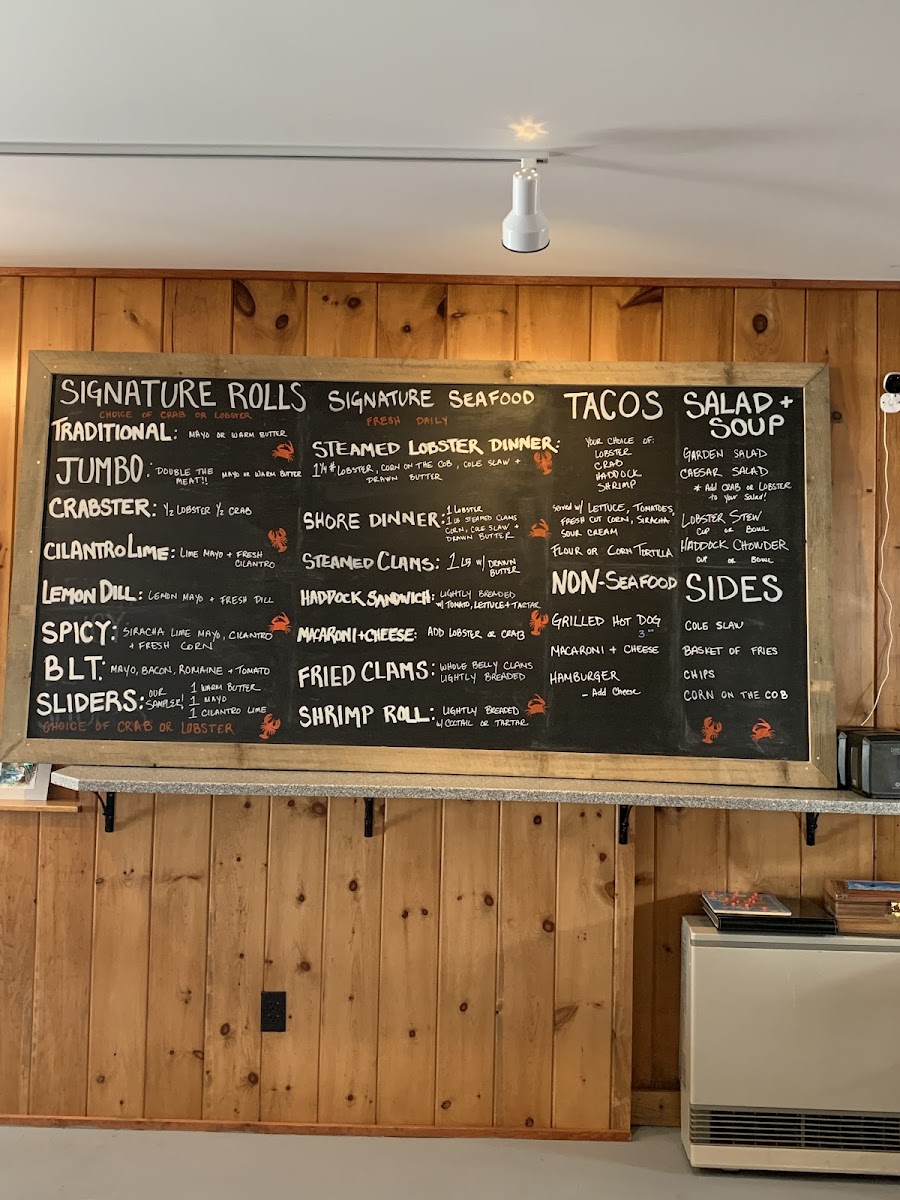 SIGNATURE ROLLS
CHOICE OF CRAB OR LOBSTER
TRADITIONAL: MAYO OR WARM BUTTER
JUMBO: DOUBLE THE MEAT!! MAYO OR WARM BUTTER
CRABSTER: 1/2 LOBSTER 1/2 CRAB
CILANTRO LIME: LIME MAYO + FRESH
CILANTRO
LEMON DILL: LEMON MAYO + FRESH DILL
SPICY: SIRACHA LIME MAYO, CILANTRO
+ FRESH CORN
BLT: MAYO, BACON, ROMAINE + TOMATO
SLIDERS: OUR SAMPLER!
1 WARM BUTTER
1 MAYO
1 CILANTRO LIME
CHOICE OF CRAB OR LOBSTER
SIGNATURE SEAFOOD
FRESH DAILY
STEAMED LOBSTER DINNER:
1 1/4 # LOBSTER, CORN ON THE COB, COLE SLAW +
DRAWN BUTTER
SHORE DINNER: 1 LOBSTER
1 LB STEAMED CLAMS
CORN, COLE SLAW +
DRAWN BUTTER
STEAMED CLAMS: 1 LB W/ DRAWN
BUTTER
HADDOCK SANDWICH: LIGHTLY BREADED
W/ TOMATO, LETTUCE + TARTAR
MACARONI + CHEESE: ADD LOBSTER OR CRAB
FRIED CLAMS: WHOLE BELLY CLAMS
LIGHTLY BREADED
SHRIMP ROLL: LIGHTLY BREADED
W/ COCTAIL OR TARTAR
TACOS
YOUR CHOICE OF:
LOBSTER
CRAB
HADDOCK
SHRIMP
Served W/ LETTUCE, TOMATOES,
FRESH CUT CORN, SIRACHA
SOUR CREAM
FLOUR OR CORN TORTILLA
NON-SEAFOOD
GRILLED HOT DOG
3.00
MACARONI + CHEESE
HAMBURGER
- Add Cheese
SALAD +
SOUP
GARDEN SALAD
CAESAR SALAD
* Add CRAB or LOBSTER
to your Salad!
LOBSTER STEW
CUP OR BOWL
HADDOCK CHOWDER
CUP OR BOWL
SIDES
COLE SLAW
BASKET OF FRIES
CHIPS
CORN ON THE COB